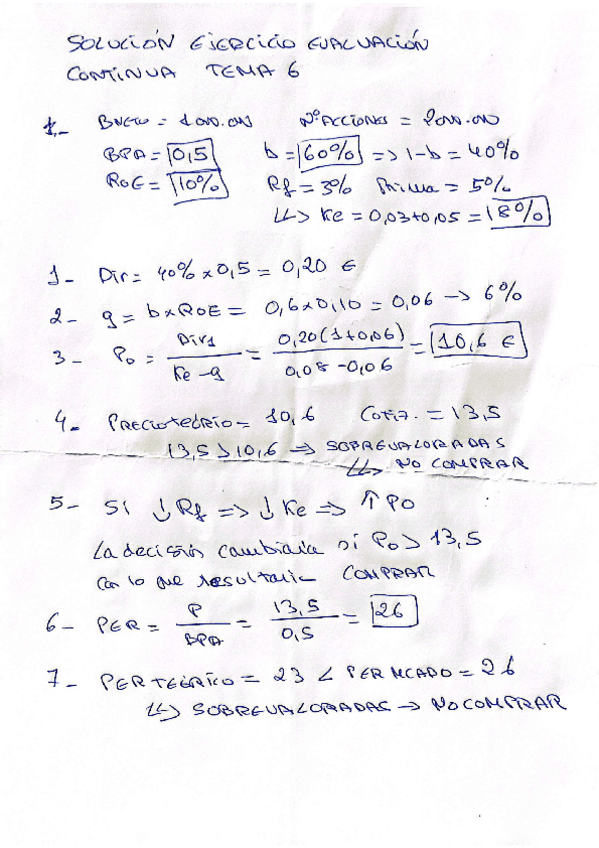 SOLUCIÓN EJERCICIO EVALUACIÓN
CONTINUA TEMA 6
1.- BNETO = 1000.000 Nº ACCIONES = 2000.000
BPA = 0,5 b = 60% => 1-b = 40%
ROE = 10% Rf = 3% Prima = 5%
↳> Ke = 0,03+0,05 = 8%
1- Div = 40% x 0,5 = 0,20 €
2- g = b x ROE = 0,6 x 0,10 = 0,06 -> 6%
3- Po = Div1 / Ke - g = 0,20(1+0,06) / 0,08-0,06 = 10,6 €
4- PRECIO TEÓRICO = 10,6 Cotiz. = 13,5
13,5 > 10,6 => SOBREVALORADAS
↳> NO COMPRAR
5- Si ↓Rf => ↓Ke => ↑Po
La decisión cambiaría si Po > 13,5
con lo que resultaría COMPRAR
6- PER = P / BPA = 13,5 / 0,5 = 26
7- PER TEÓRICO = 23 < PER MCADO = 26
↳> SOBREVALORADAS -> NO COMPRAR